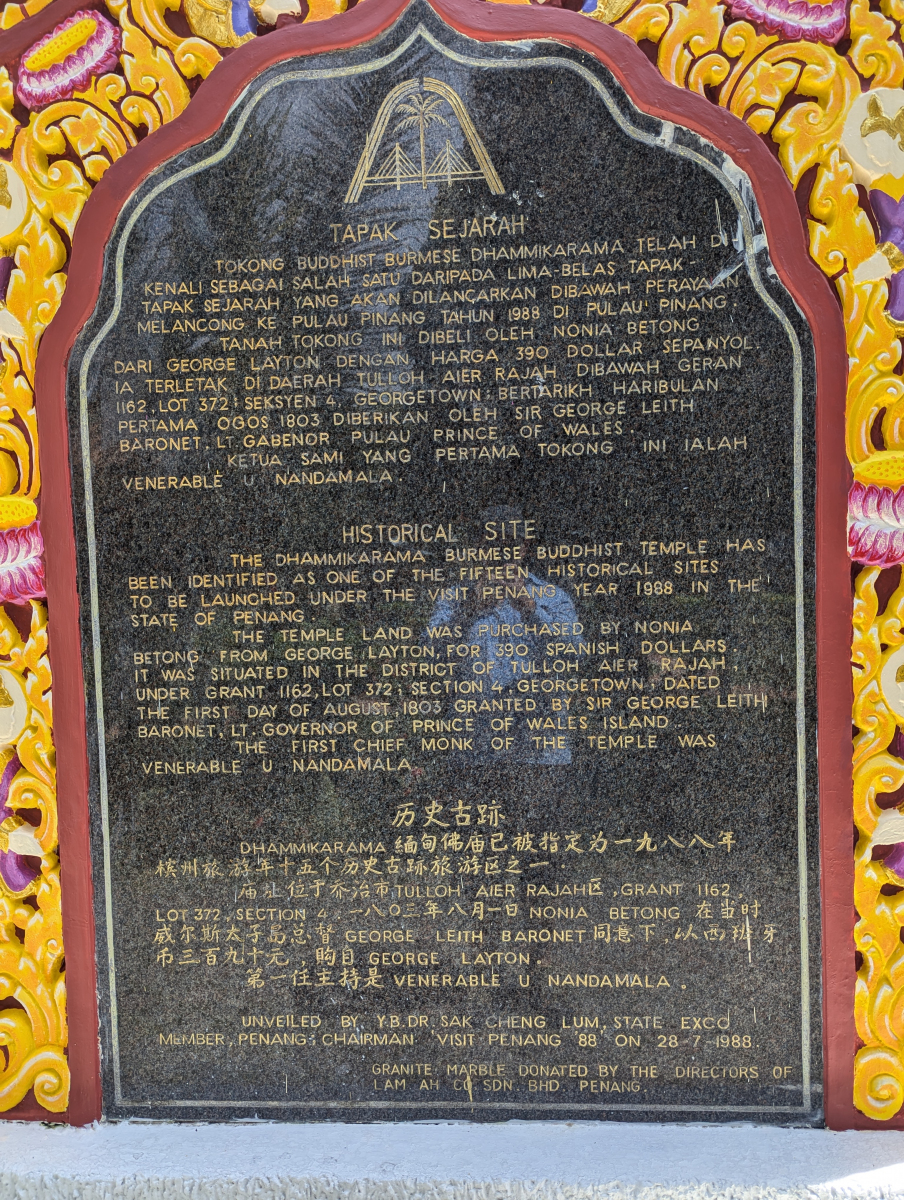 TAPAK SEJARAH
TOKONG BUDDHIST BURMESE DHAMMIKARAMA TELAH DI
KENALI SEBAGAI SALAH SATU DARIPADA LIMA-BELAS TAPAK-
TAPAK SEJARAH YANG AKAN DILANCARKAN DIBAWAH PERAYAAN
MELANCONG KE PULAU PINANG TAHUN 1988 DI PULAU PINANG.
TANAH TOKONG INI DIBELI OLEH NONIA BETONG
DARI GEORGE LAYTON DENGAN HARGA 390 DOLLAR SEPANYOL.
IA TERLETAK DI DAERAH TULLOH AIER RAJAH DIBAWAH GERAN
1162, LOT 372; SEKSYEN 4, GEORGETOWN; BERTARIKH HARIBULAN
PERTAMA OGOS 1803 DIBERIKAN OLEH SIR GEORGE LEITH
BARONET, LT. GABENOR PULAU PRINCE OF WALES.
KETUA SAMI YANG PERTAMA TOKONG INI IALAH
VENERABLE U NANDAMALA.
HISTORICAL SITE
THE DHAMMIKARAMA BURMESE BUDDHIST TEMPLE HAS
BEEN IDENTIFIED AS ONE OF THE FIFTEEN HISTORICAL SITES
TO BE LAUNCHED UNDER THE VISIT PENANG YEAR 1988 IN THE
STATE OF PENANG.
THE TEMPLE LAND WAS PURCHASED BY NONIA
BETONG FROM GEORGE LAYTON, FOR 390 SPANISH DOLLARS
IT WAS SITUATED IN THE DISTRICT OF TULLOH AIER RAJAH,
UNDER GRANT 1162, LOT 372; SECTION 4, GEORGETOWN; DATED
THE FIRST DAY OF AUGUST, 1803 GRANTED BY SIR GEORGE LEITH
BARONET, LT. GOVERNOR OF PRINCE OF WALES ISLAND.
THE FIRST CHIEF MONK OF THE TEMPLE WAS
VENERABLE U NANDAMALA.
历史古跡
DHAMMIKARAMA 缅甸佛庙已被指定为一九八八年
槟州旅游年十五个历史古跡旅游区之一.
庙址位于乔治市, TULLOH AIER RAJAH区, GRANT 1162,
LOT 372, SECTION 4. 一八〇三年八月一日 NONIA BETONG 在当时
威尔斯太子岛总督 GEORGE LEITH BARONET 同意下, 以西班牙
币三百九十元, 购自 GEORGE LAYTON.
第一任主持是 VENERABLE U NANDAMALA。
UNVEILED BY Y.B. DR. SAK CHENG LUM, STATE EXCO
MEMBER, PENANG; CHAIRMAN VISIT PENANG '88 ON 28-7-1988.
GRANITE MARBLE DONATED BY THE DIRECTORS OF
LAM AH CO SDN. BHD. PENANG.